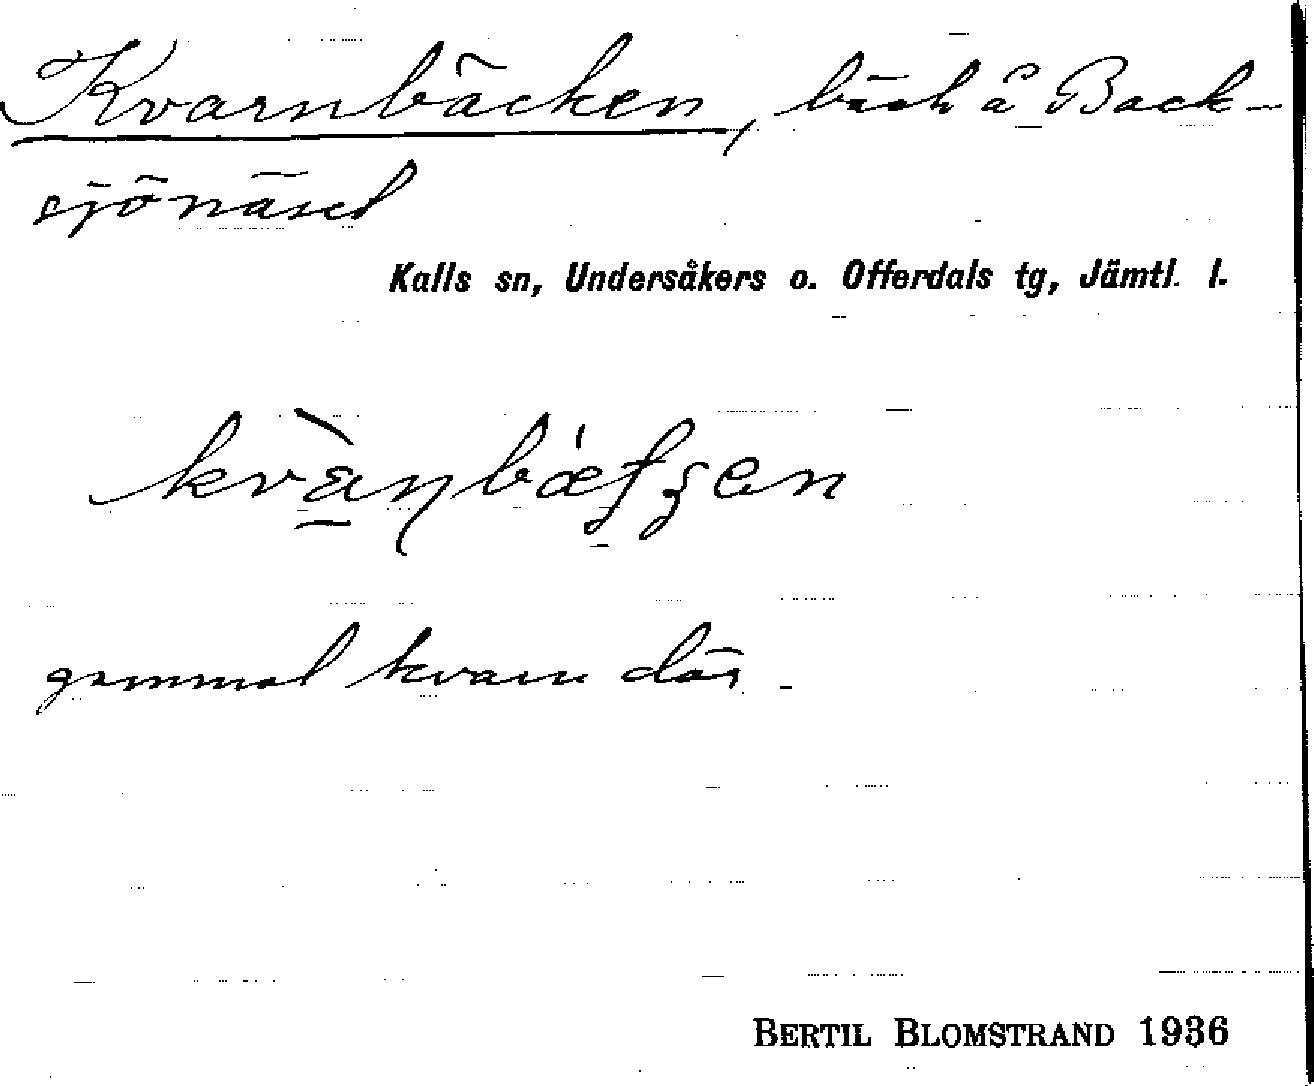 Kvarnbäcken, bäck å Back-
sjönäset
Kalls sn, Undersåkers o. Offerdals tg, Jämtl. l.
gammal kvarn där
BERTIL BLOMSTRAND 1936